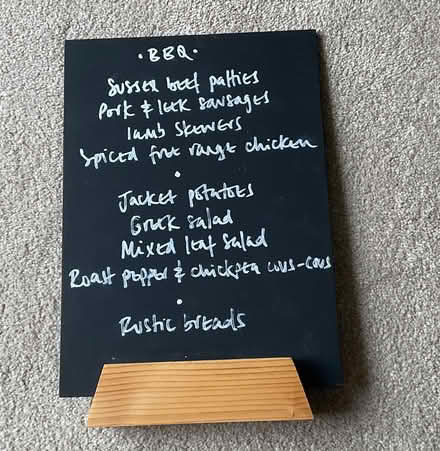 • BBQ •
Sussex beef patties
Pork & leek sausages
lamb skewers
Spiced free range chicken
•
Jacket potatoes
Greek salad
Mixed leaf salad
Roast pepper & chickpea cous-cous
•
Rustic breads